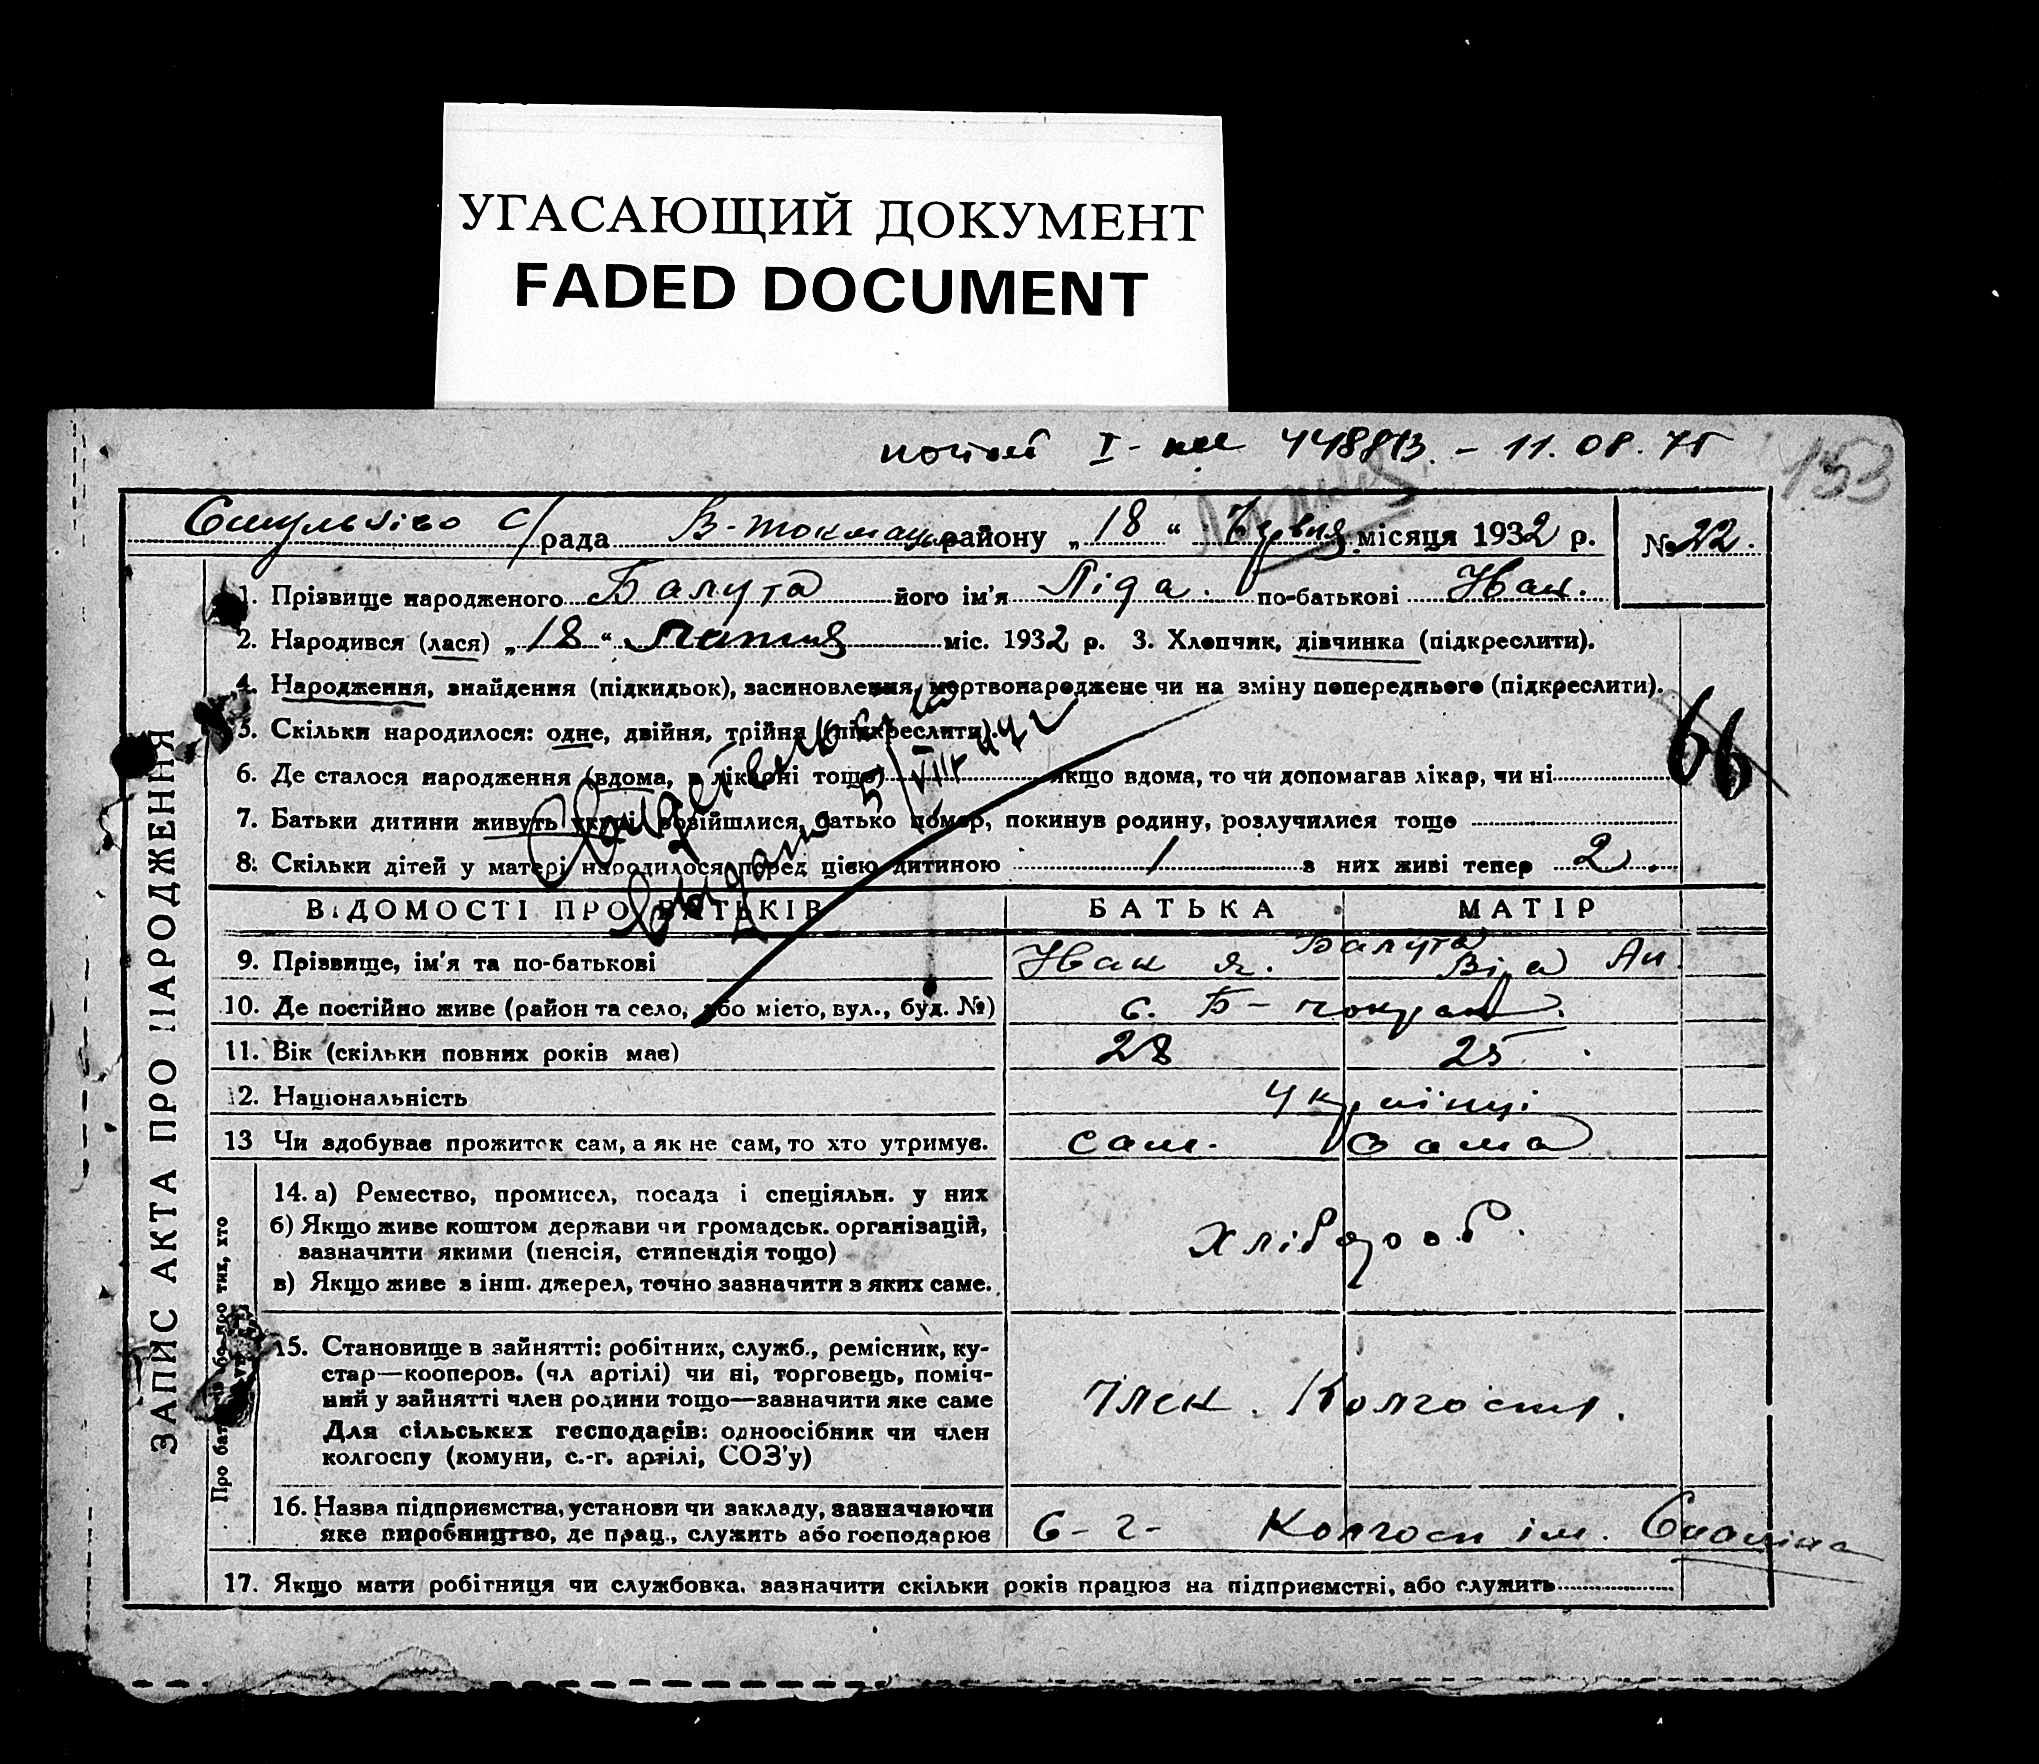 УГАСАЮЩИЙ ДОКУМЕНТ
FADED DOCUMENT
I- 11.08.75
153
с/рада В-Токмацьк району „18“ Червня місяця 1932 р. № 22.
1. Прізвище народженого Балута його ім'я Ліда. по-батькові Иван.
2. Народився (лася) „18“ міс. 1932 р. 3. Хлопчик, дівчинка (підкреслити).
4. Народження, знайдення (підкидьок), засиновлення, мертвонароджене чи на зміну попереднього (підкреслити).
5. Скільки народилося: одне, двійня, трійня (підкреслити).
66
6. Де сталося народження (вдома, в лікарні тощо) якщо вдома, то чи допомагав лікар, чи ні
7. Батьки дитини живуть укупі, розійшлися, батько помер, покинув родину, розлучилися тоще
8. Скільки дітей у матері народилося перед цією дитиною 1 з них живі тепер 2.
ВІДОМОСТІ ПРО БАТЬКІВ БАТЬКА МАТІР
9. Прізвище, ім'я та по-батькові Иван Я. Балута Віра Ан.
10. Де постійно живе (район та село, або місто, вул., буд. №) с. Б-Токмак.
11. Вік (скільки повних років має) 28 25.
12. Національність Українці
13 Чи здобуває прожиток сам, а як не сам, то хто утримує. сам. сама
14. а) Ремество, промисел, посада і спеціяльн. у них
б) Якщо живе коштом держави чи громадськ. організацій,
зазначити якими (пенсія, стипендія тощо)
в) Якщо живе з інш. джерел, точно зазначити з яких саме.
хлібороб.
15. Становище в зайнятті: робітник, служб., ремісник, ку-
стар—кооперов. (чл артілі) чи ні, торговець, поміч-
ний у зайнятті член родини тощо—зазначити яке саме
Для сільських господарів: одноосібник чи член
колгоспу (комуни, с.-г. артілі, СОЗ'у)
Член. Колгоспу.
16. Назва підприємства, установи чи закладу, зазначаючи
яке виробництво, де прац., служить або господарює
С-г- Колгосп ім. Сталіна
17. Якщо мати робітниця чи службовка, зазначити скільки років працює на підприємстві, або служить
ЗАПИС АКТА ПРО НАРОДЖЕННЯ